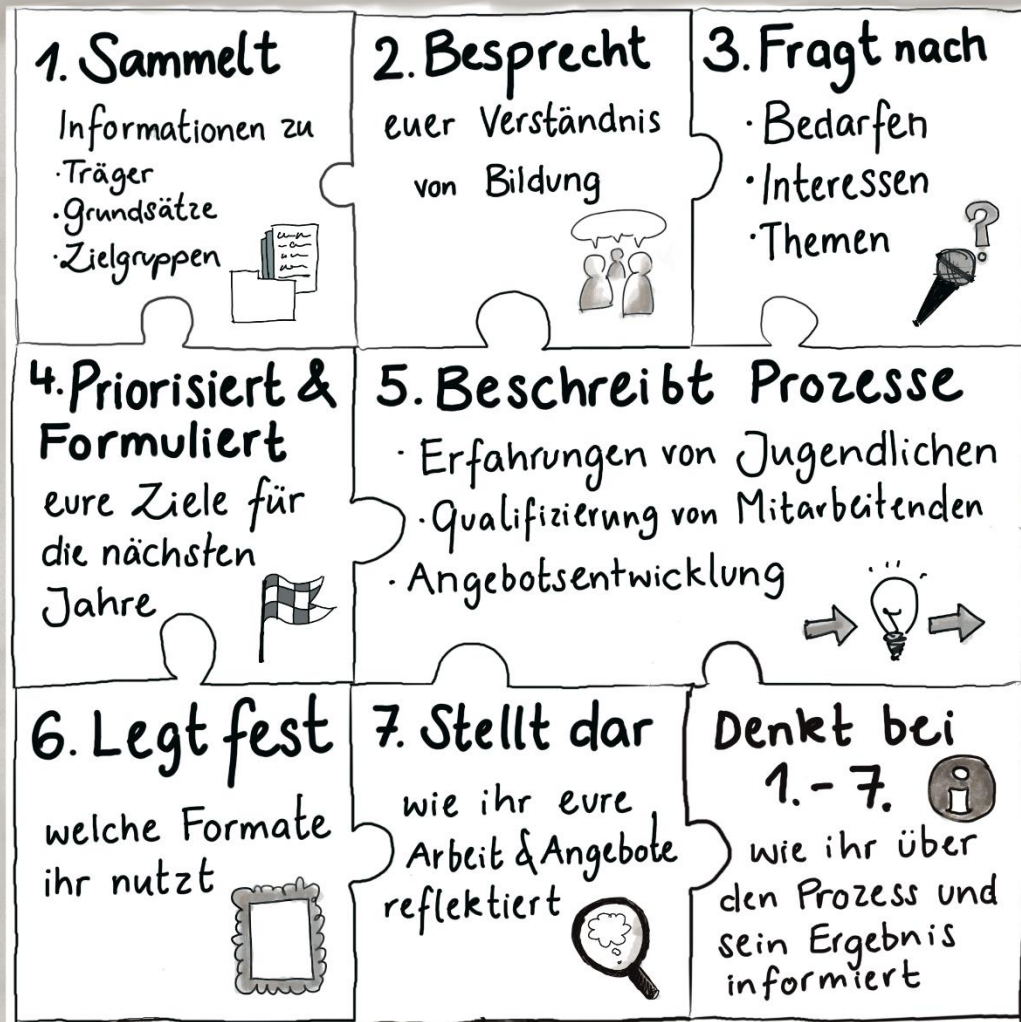 1. Sammelt
Informationen zu
· Träger
· Grundsätze
· Zielgruppen
2. Besprecht
euer Verständnis
von Bildung
3. Fragt nach
· Bedarfen
· Interessen
· Themen
?
4. Priorisiert &
Formuliert
eure Ziele für
die nächsten
Jahre
5. Beschreibt Prozesse
· Erfahrungen von Jugendlichen
· Qualifizierung von Mitarbeitenden
· Angebotsentwicklung
6. Legt fest
welche Formate
ihr nutzt
7. Stellt dar
wie ihr eure
Arbeit & Angebote
reflektiert
Denkt bei
1. - 7.
i
wie ihr über
den Prozess und
sein Ergebnis
informiert